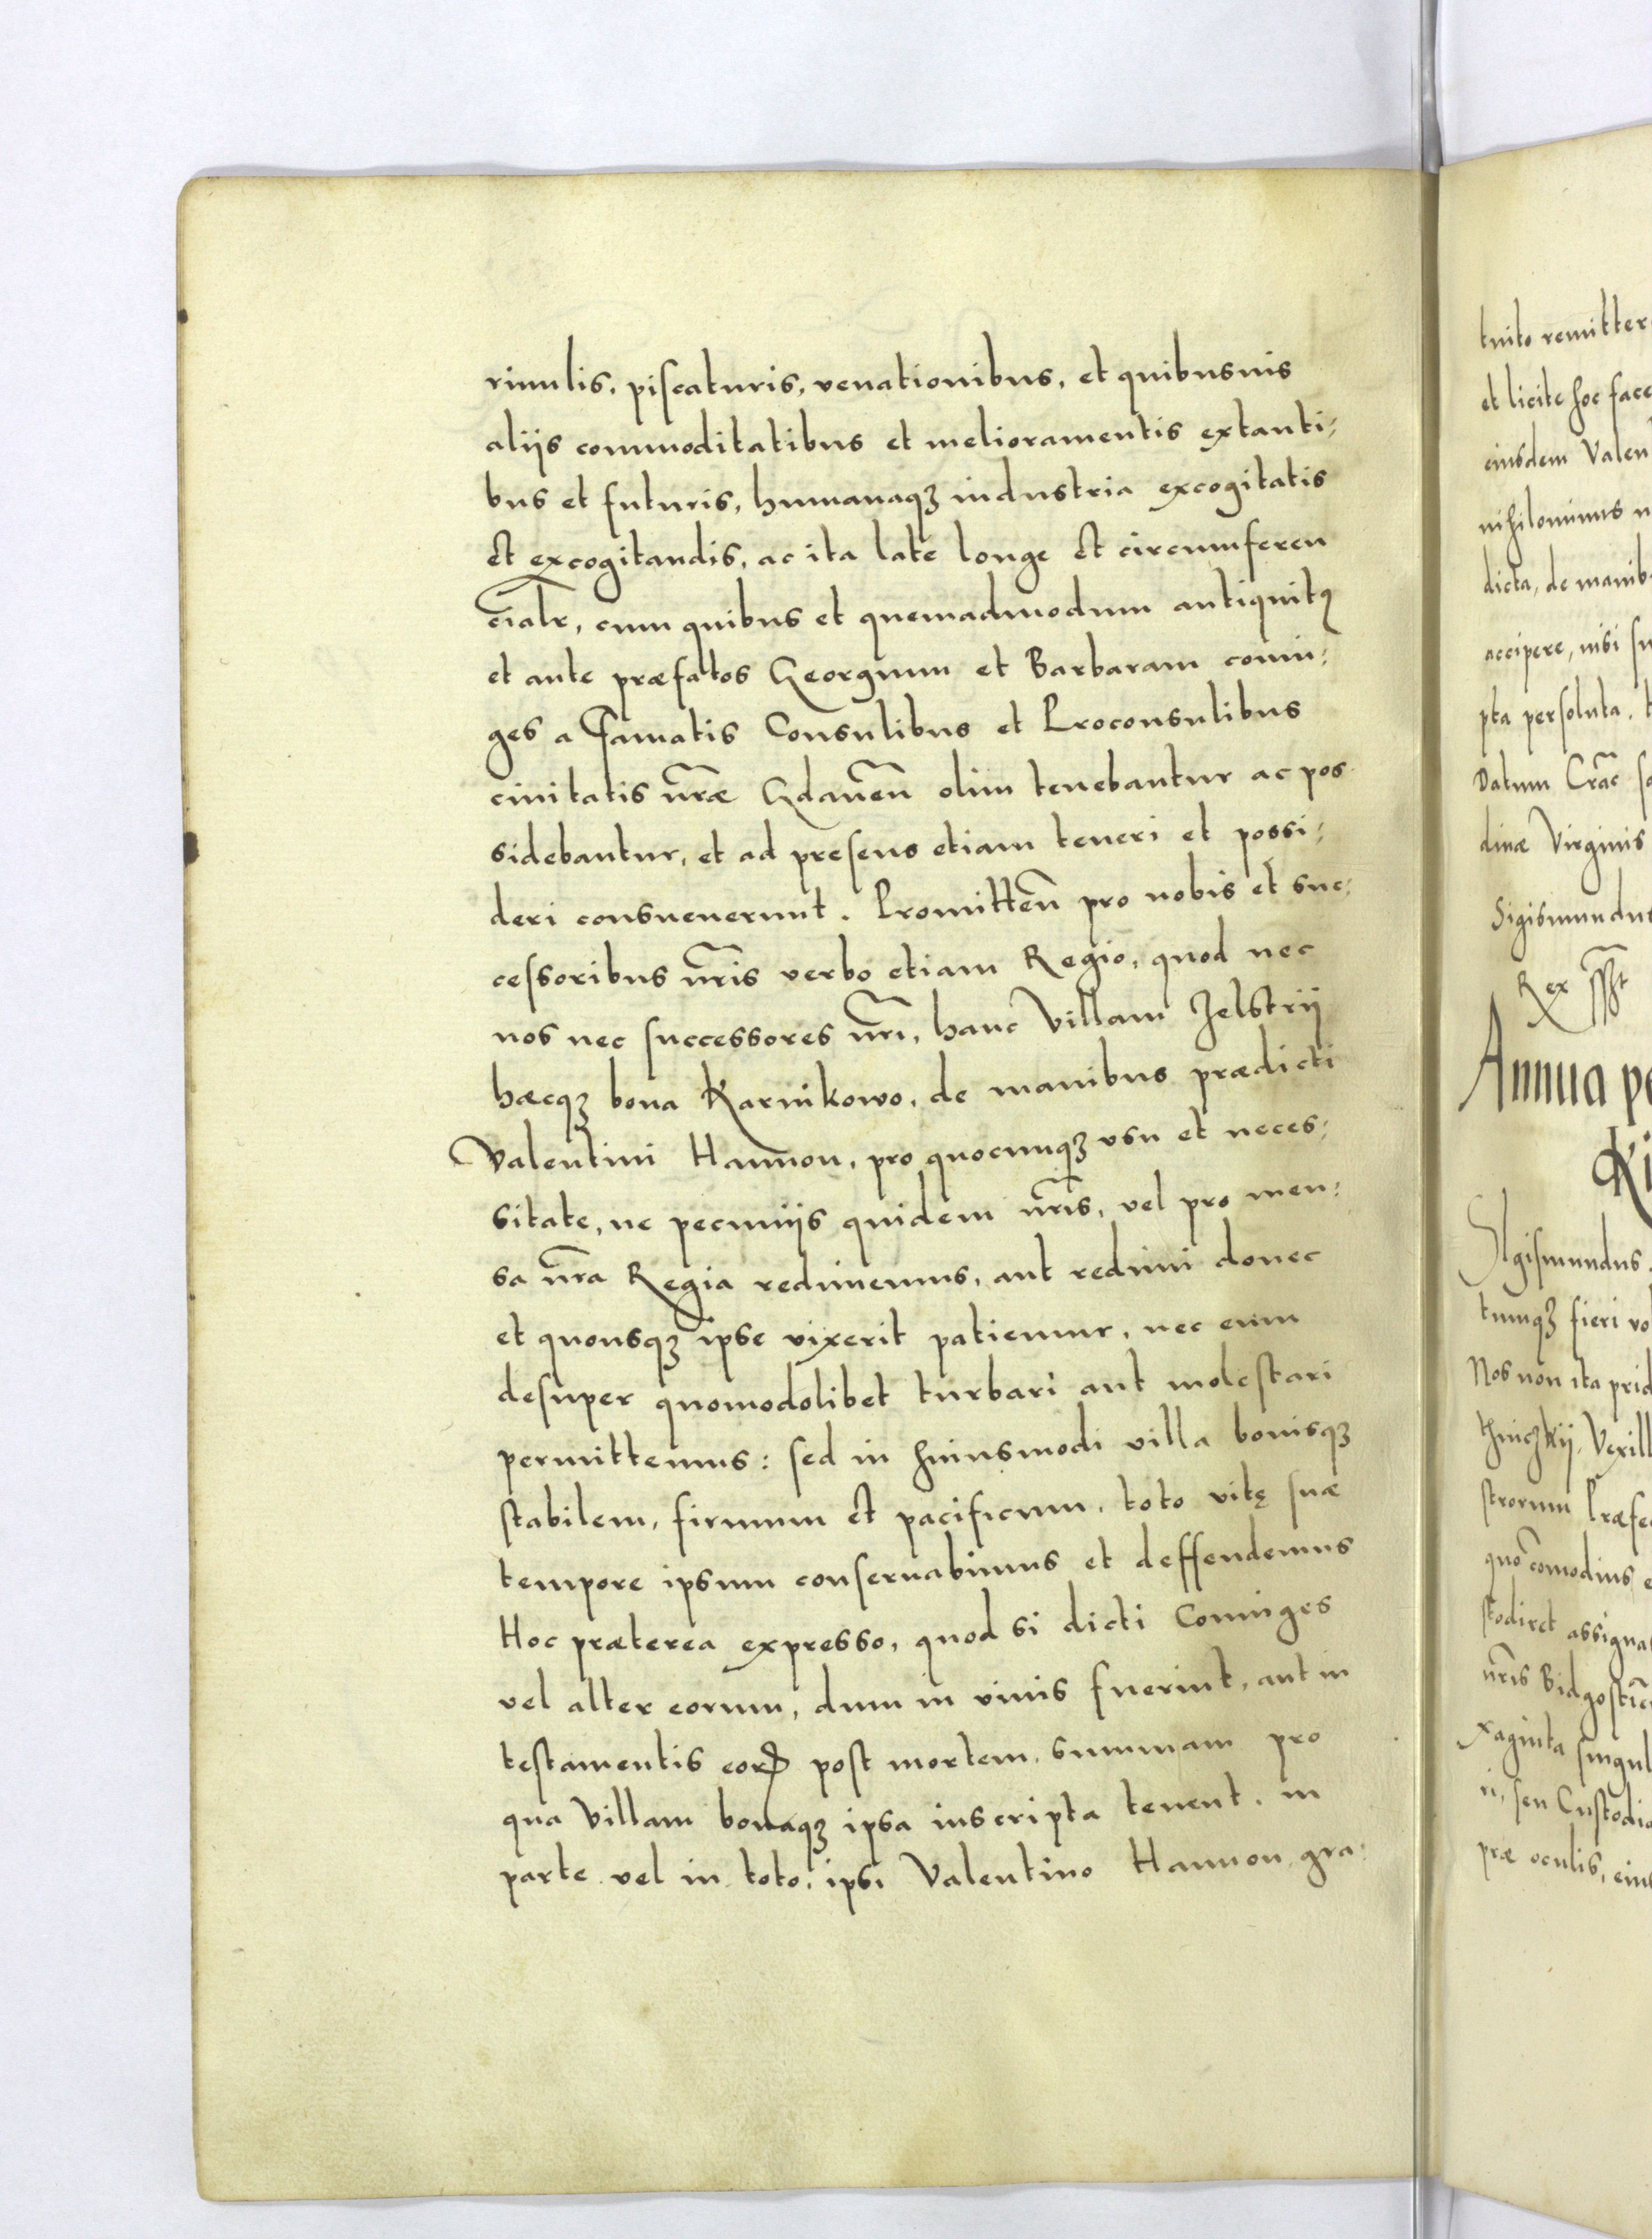 riuulis, piscaturis, venationibus, et quibusuis
aliis commoditatibus et melioramentis extanti-
bus et futuris, humanaq3 industria excogitatis
et excogitandis, ac ita late longe et circumferen
cialr̄, cum quibus et quemadmodum antiquitꝰ
et ante præfatos Georgium et Barbaram coniu-
ges a Famatis Consulibus et Proconsulibus
ciuitatis nr̄æ Gdanen̄ olim tenebantur ac pos
sidebantur, et ad presens etiam teneri et possi-
deri consueuerunt. Promitten̄ pro nobis et suc-
cessoribus nr̄is verbo etiam Regio, quod nec
nos nec successores nr̄i, hanc Villam Zelstrij
hæcq3 bona Karnikowo, de manibus prædicti
Valentini Hannon, pro quocunq3 vsu et neces-
sitate, ne pecuniis quidem nr̄is, vel pro men-
sa nr̄a Regia redimemus, aut redimi donec
et quousq3 ipse vixerit patiemur, nec eum
desuper quomodolibet turbari aut molestari
permittemus: sed in huiusmodi villa bonisq3
stabilem, firmum et pacificum, toto vitę suæ
tempore ipsum conseruabimus et deffendemus
Hoc præterea expresso, quod si dicti Coniuges
vel alter eorum, dum in viuis fuerint, aut in
testamentis eorꝝ post mortem, summam pro
qua Villam bonaq3 ipsa inscripta tenent, in
parte vel in toto, ipsi Valentino Hannon gra-
tuito remitter
et licite hoc face
eiusdem Valen
nihilominus n
dicta, de manib
accipere, nisi su
pta persoluta.
Datum Crac̄
diuæ Virginis
Sigismundus
Rex sst
Annua pe
Ki
Sigismundus
tumq3 fieri vo
Nos non ita prid
Vexill
strorum Præfe
quo com̄odius e
stodiret assigna
nr̄is Bidgostie
xaginta singul
ri, seu Custodia
præ oculis, eius